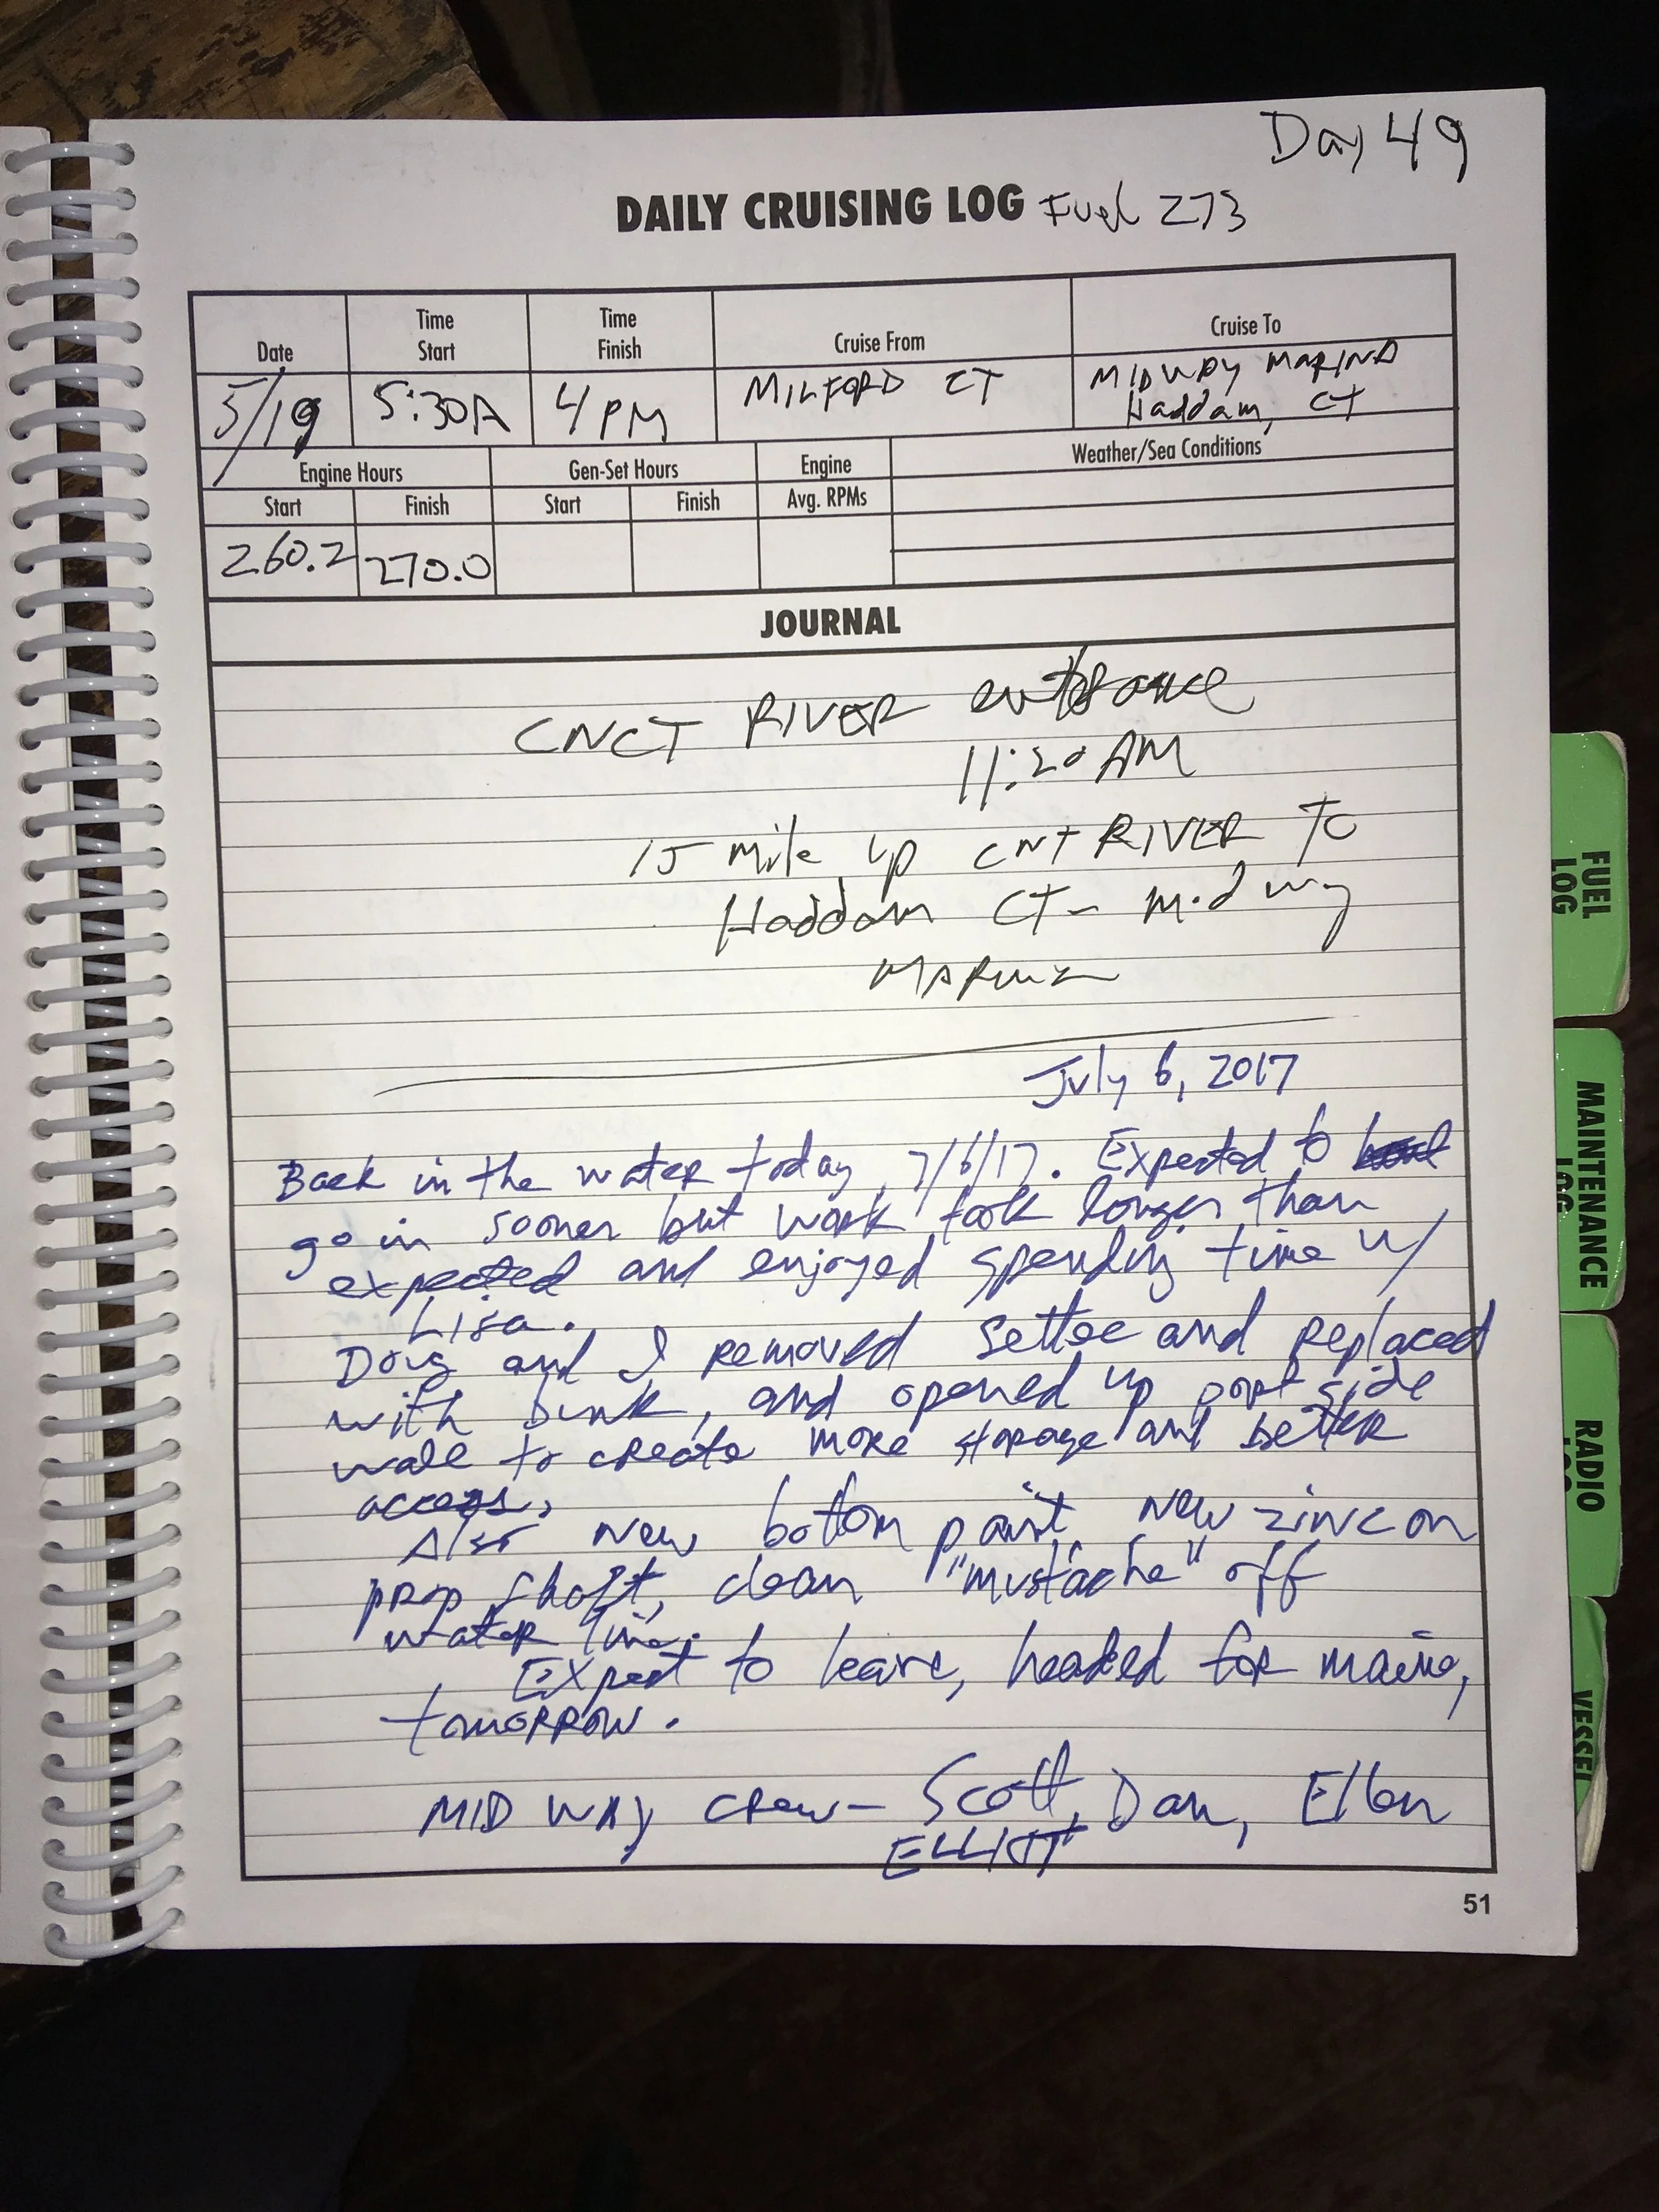 Day 49
DAILY CRUISING LOG Fuel 273
Date
Time Start
Time Finish
Cruise From
Cruise To
5/19
5:30A
4 PM
MILFORD CT
MIDWAY MARINA
Haddam, CT
Engine Hours
Gen-Set Hours
Engine
Weather/Sea Conditions
Start
Finish
Start
Finish
Avg. RPMs
260.2
270.0
JOURNAL
CNCT RIVER entrance
11:20 AM
15 mile up CNT RIVER TO
Haddam CT - Midway
MARINA
July 6, 2017
Back in the water today, 7/6/17. Expected to
go in sooner but work took longer than
expected and enjoyed spending time w/
Lisa.
Doug and I removed settee and replaced
with bunk, and opened up port side
wall to create more storage and better
access.
Also new bottom paint, new zinc on
prop shaft, clean "mustache" off
water line.
Expect to leave, headed for maine,
tomorrow.
MIDWAY crew - Scott, Dan, Ellen
ELLIOTT
51
FUEL LOG
MAINTENANCE LOG
RADIO LOG
VESSEL